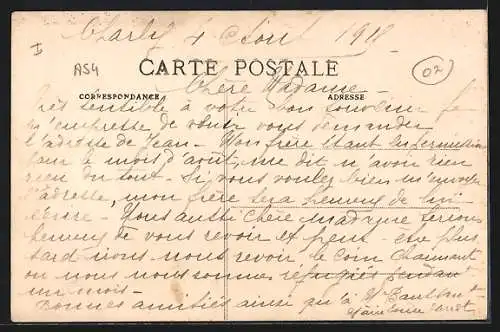 Charly 4 Août 1918
I
AS4
CARTE POSTALE
02
Chère Madame
CORRESPONDANCE
ADRESSE
Très sensible à votre bon souvenir je
m'empresse de vous demander
l'adresse de Jean - Mon frère étant en permission
pour le mois d'août, me dit n'avoir rien
reçu du tout - Si vous voulez bien m'envoyer
l'adresse, mon frère sera heureux de lui
écrire - Nous aussi chère Madame serions
heureux de vous revoir et peut-être plus
tard irons-nous revoir le coin charmant
où nous nous sommes réfugiés pendant
un mois -
Bonnes amitiés ainsi qu'à Mr